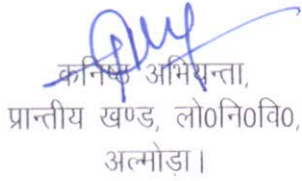 कनिष्ठ अभियन्ता,
प्रान्तीय खण्ड, लो0नि0वि0,
अल्मोड़ा।